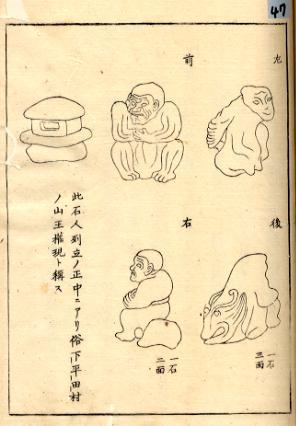 47
左
前
後
一石
三面
右
一石
二面
此石人列立ノ正中ニアリ俗下平田村
ノ山王権現ト稱ス